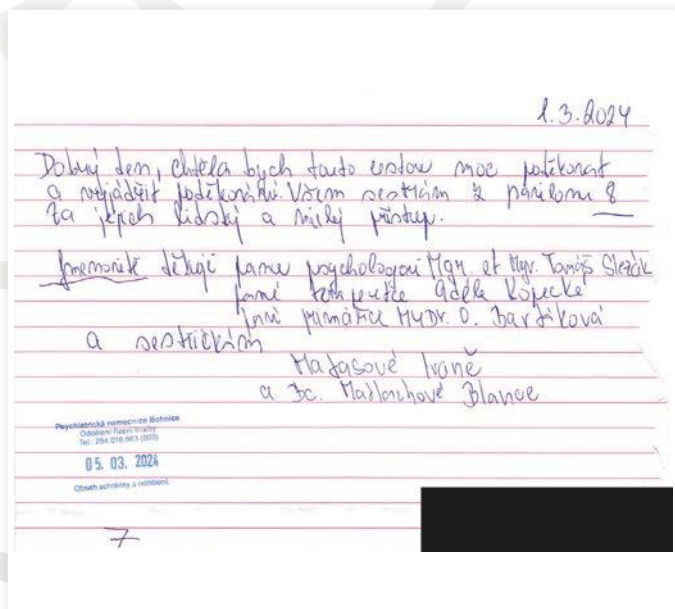 1.3.2024
Dobrý den, chtěla bych touto cestou moc poděkovat
a vyjádřit poděkování. Všem sestrám z pavilonu 8
za jejich lidský a milý přístup.
Jmenovitě děkuji panu psychologovi Mgr. et Mgr. Tomáš Slezák
paní terapeutce Adéla Kopecké
paní primářce MUDr. O. Bartíková
a sestřičkám
Ivaně
a Bc. Blance
Psychiatrická nemocnice Bohnice
Tel.: 284 016
05. 03. 2024
Obsah schránky z oddělení:
7